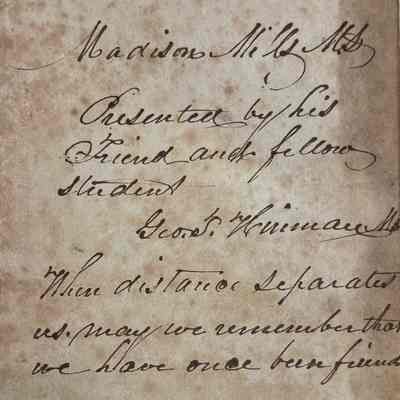 Madison Mills MD
Presented by his
Friend and fellow
student
Geo. F. Hinman M
When distance separates
us. may we remember that
we have once been friend